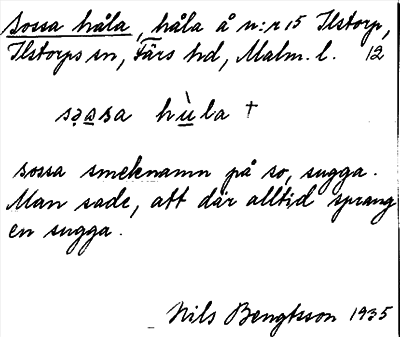 Sossa håla, håla å n:r 15 Ilstorp,
Ilstorps sn, Färs hd, Malm. l. 12
sạa̲sa hù̲la †
sossa smeknamn på so, sugga.
Man sade, att där alltid sprang
en sugga.
Nils Bengtsson 1935